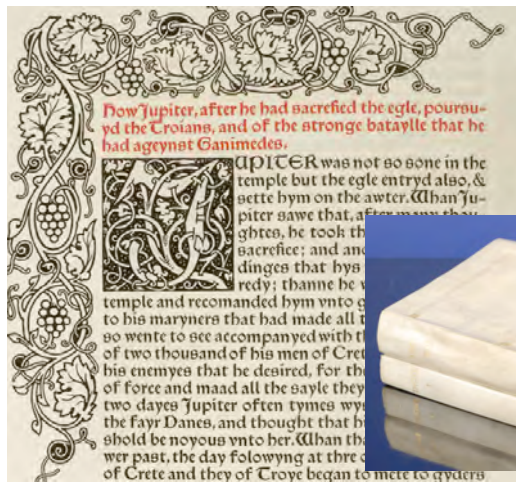 How Jupiter, after he had sacrefied the egle, poursu-
yd the Troians, and of the stronge bataylle that he
had ageynst Ganimedes.
JUPITER was not so sone in the
temple but the egle entryd also, &
sette hym on the awter. Whan Ju-
piter sawe that, after many thou-
ghtes, he took th
sacrefice; and an
dinges that hys
redy; thanne he
temple and recomanded hym vnto g
to his maryners that had made all t
so wente to see accompanyed with th
of two thousand of his men of Cret
his enemyes that he desired, for the
of force and maad all the sayle they
two dayes Jupiter often tymes wys
the fayr Danes, and thought that hi
shold be noyous vnto her. Whan tha
wer past, the day folowyng at thre o
of Crete and they of Troye began to mete to gyders